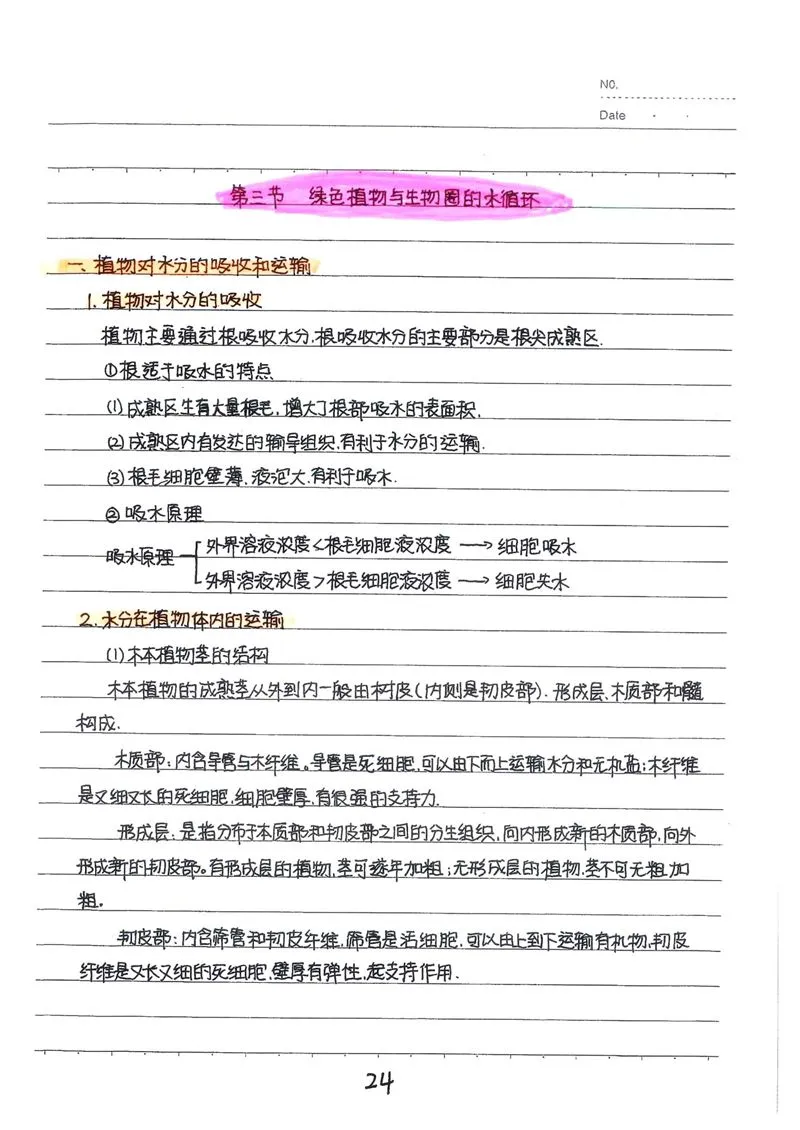 NO.
Date
第三节 绿色植物与生物圈的水循环
一、植物对水分的吸收和运输
1.植物对水分的吸收
植物主要通过根吸收水分.根吸收水分的主要部分是根尖成熟区.
①根适于吸水的特点
(1)成熟区生有大量根毛,增大了根部吸水的表面积.
(2)成熟区内有发达的输导组织,有利于水分的运输.
(3)根毛细胞壁薄、液泡大,有利于吸水.
②吸水原理
吸水原理
外界溶液浓度<根毛细胞液浓度→细胞吸水
外界溶液浓度>根毛细胞液浓度→细胞失水
2.水分在植物体内的运输
(1)木本植物茎的结构
木本植物的成熟茎从外到内一般由树皮(内侧是韧皮部)、形成层、木质部和髓
构成.
木质部:内含导管与木纤维。导管是死细胞,可以由下而上运输水分和无机盐;木纤维
是又细又长的死细胞,细胞壁厚,有很强的支持力.
形成层:是指分布于木质部和韧皮部之间的分生组织,向内形成新的木质部,向外
形成新的韧皮部。有形成层的植物,茎可逐年加粗;无形成层的植物,茎不可无粗加
粗。
韧皮部:内含筛管和韧皮纤维,筛管是活细胞,可以由上到下运输有机物,韧皮
纤维是又长又细的死细胞,壁厚有弹性,起支持作用.
24